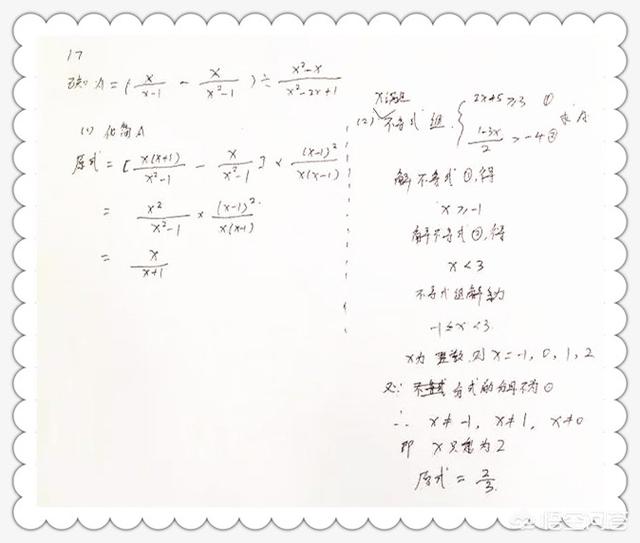 17
已知 A = ( x/(x-1) - x/(x²-1) ) ÷ (x²-x)/(x²-2x+1)
(1) 化简A
原式 = [ x(x+1)/(x²-1) - x/(x²-1) ] × (x-1)²/(x(x-1))
= x²/(x²-1) × (x-1)²/(x(x-1))
= x/(x+1)
x满足
(2) 不等式组 { 2x+5≥3 ① 求A
(1-3x)/2 > -4 ②
解不等式①,得
x≥-1
解不等式②,得
x<3
不等式组解为
-1≤x<3
x为整数,则 x=-1, 0, 1, 2
又∵ 分式的分母不为0
∴ x≠-1, x≠1, x≠0
即 x只能为2
原式 = 2/3
悟空问答